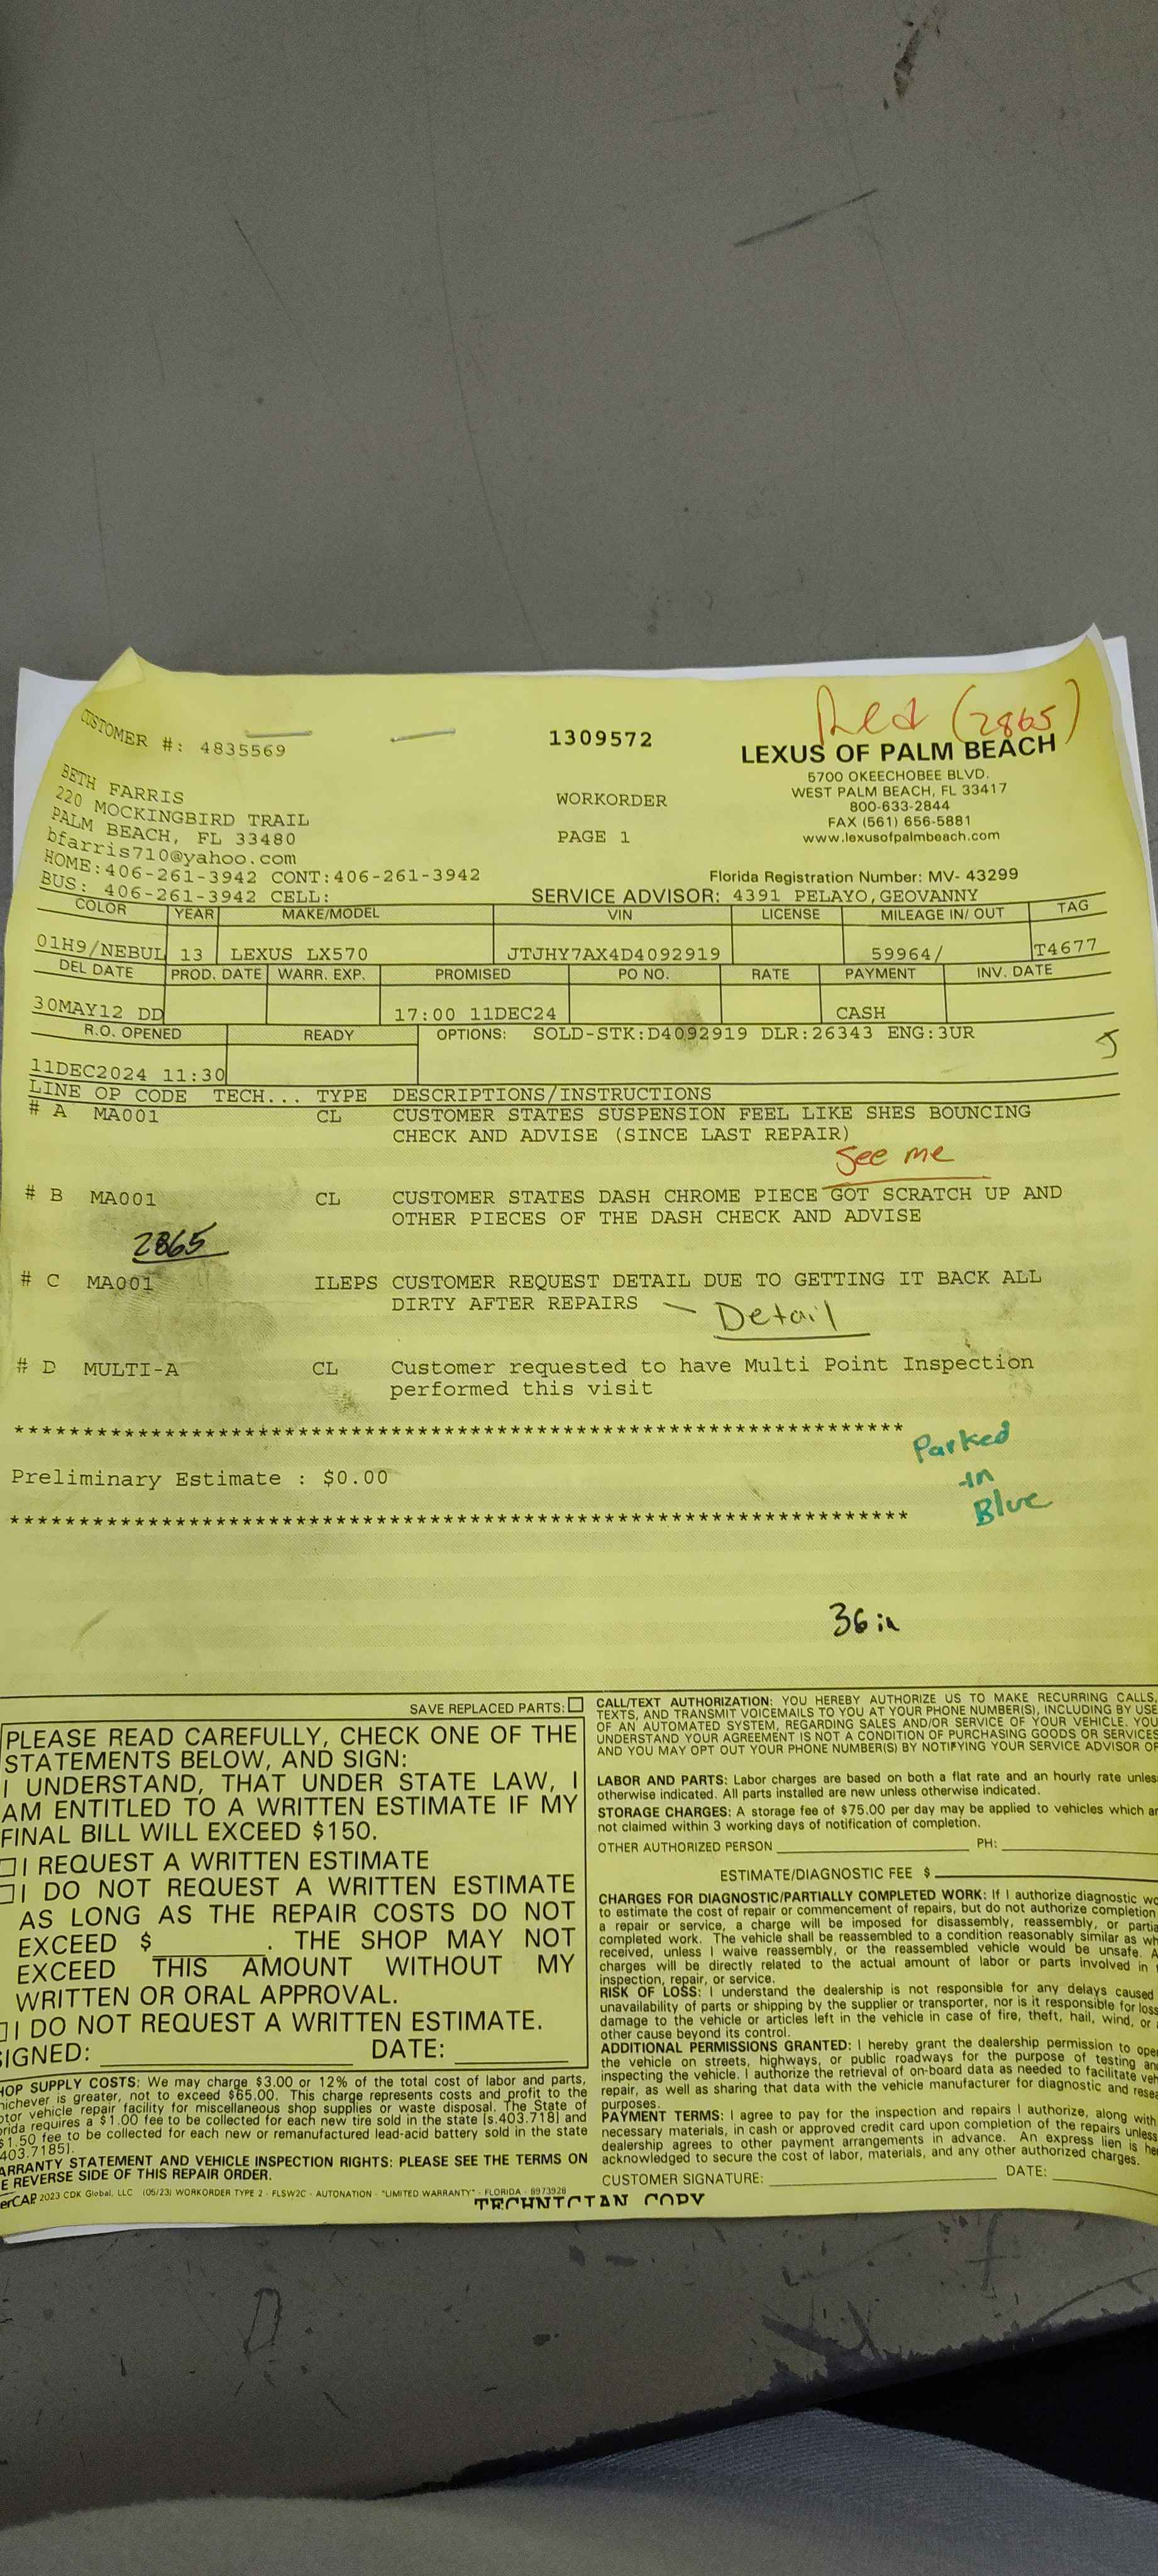 Red (2865)
CUSTOMER #: 4835569
1309572
LEXUS OF PALM BEACH
5700 OKEECHOBEE BLVD.
WEST PALM BEACH, FL 33417
800-633-2844
FAX (561) 656-5881
www.lexusofpalmbeach.com
BETH FARRIS
220 MOCKINGBIRD TRAIL
PALM BEACH, FL 33480
bfarris710@yahoo.com
HOME:406-261-3942 CONT:406-261-3942
BUS: 406-261-3942 CELL:
WORKORDER
PAGE 1
Florida Registration Number: MV- 43299
SERVICE ADVISOR: 4391 PELAYO,GEOVANNY
COLOR YEAR MAKE/MODEL VIN LICENSE MILEAGE IN/ OUT TAG
01H9/NEBUL 13 LEXUS LX570 JTJHY7AX4D4092919 59964/ T4677
DEL DATE PROD. DATE WARR. EXP. PROMISED PO NO. RATE PAYMENT INV. DATE
30MAY12 DD 17:00 11DEC24 CASH
R.O. OPENED READY OPTIONS: SOLD-STK:D4092919 DLR:26343 ENG:3UR
11DEC2024 11:30
LINE OP CODE TECH... TYPE DESCRIPTIONS/INSTRUCTIONS
# A MA001 CL CUSTOMER STATES SUSPENSION FEEL LIKE SHES BOUNCING
CHECK AND ADVISE (SINCE LAST REPAIR)
See me
# B MA001 CL CUSTOMER STATES DASH CHROME PIECE GOT SCRATCH UP AND
OTHER PIECES OF THE DASH CHECK AND ADVISE
2865
# C MA001 ILEPS CUSTOMER REQUEST DETAIL DUE TO GETTING IT BACK ALL
DIRTY AFTER REPAIRS - Detail
# D MULTI-A CL Customer requested to have Multi Point Inspection
performed this visit
*****************************************************************
Parked
in
Blue
Preliminary Estimate : $0.00
*****************************************************************
36 in
SAVE REPLACED PARTS:
PLEASE READ CAREFULLY, CHECK ONE OF THE
STATEMENTS BELOW, AND SIGN:
I UNDERSTAND, THAT UNDER STATE LAW, I
AM ENTITLED TO A WRITTEN ESTIMATE IF MY
FINAL BILL WILL EXCEED $150.
I REQUEST A WRITTEN ESTIMATE
I DO NOT REQUEST A WRITTEN ESTIMATE
AS LONG AS THE REPAIR COSTS DO NOT
EXCEED $________. THE SHOP MAY NOT
EXCEED THIS AMOUNT WITHOUT MY
WRITTEN OR ORAL APPROVAL.
I DO NOT REQUEST A WRITTEN ESTIMATE.
SIGNED: ____________ DATE: ______
HOP SUPPLY COSTS: We may charge $3.00 or 12% of the total cost of labor and parts,
hichever is greater, not to exceed $65.00. This charge represents costs and profit to the
otor vehicle repair facility for miscellaneous shop supplies or waste disposal. The State of
rida requires a $1.00 fee to be collected for each new tire sold in the state [s.403.718] and
$1.50 fee to be collected for each new or remanufactured lead-acid battery sold in the state
403.7185].
ARRANTY STATEMENT AND VEHICLE INSPECTION RIGHTS: PLEASE SEE THE TERMS ON
E REVERSE SIDE OF THIS REPAIR ORDER.
erCAP 2023 CDK Global, LLC (05/23) WORKORDER TYPE 2 - FLSW2C - AUTONATION - "LIMITED WARRANTY" - FLORIDA - 8973928
CALL/TEXT AUTHORIZATION: YOU HEREBY AUTHORIZE US TO MAKE RECURRING CALLS,
TEXTS, AND TRANSMIT VOICEMAILS TO YOU AT YOUR PHONE NUMBER(S), INCLUDING BY USE
OF AN AUTOMATED SYSTEM, REGARDING SALES AND/OR SERVICE OF YOUR VEHICLE. YOU
UNDERSTAND YOUR AGREEMENT IS NOT A CONDITION OF PURCHASING GOODS OR SERVICES
AND YOU MAY OPT OUT YOUR PHONE NUMBER(S) BY NOTIFYING YOUR SERVICE ADVISOR OF
LABOR AND PARTS: Labor charges are based on both a flat rate and an hourly rate unles
otherwise indicated. All parts installed are new unless otherwise indicated.
STORAGE CHARGES: A storage fee of $75.00 per day may be applied to vehicles which ar
not claimed within 3 working days of notification of completion.
OTHER AUTHORIZED PERSON ____________ PH: ________
ESTIMATE/DIAGNOSTIC FEE $ ____________
CHARGES FOR DIAGNOSTIC/PARTIALLY COMPLETED WORK: If I authorize diagnostic wo
to estimate the cost of repair or commencement of repairs, but do not authorize completion
a repair or service, a charge will be imposed for disassembly, reassembly, or partia
completed work. The vehicle shall be reassembled to a condition reasonably similar as wh
received, unless I waive reassembly, or the reassembled vehicle would be unsafe. A
charges will be directly related to the actual amount of labor or parts involved in
inspection, repair, or service.
RISK OF LOSS: I understand the dealership is not responsible for any delays caused
unavailability of parts or shipping by the supplier or transporter, nor is it responsible for loss
damage to the vehicle or articles left in the vehicle in case of fire, theft, hail, wind, or
other cause beyond its control.
ADDITIONAL PERMISSIONS GRANTED: I hereby grant the dealership permission to oper
the vehicle on streets, highways, or public roadways for the purpose of testing an
inspecting the vehicle. I authorize the retrieval of on-board data as needed to facilitate veh
repair, as well as sharing that data with the vehicle manufacturer for diagnostic and resea
purposes.
PAYMENT TERMS: I agree to pay for the inspection and repairs I authorize, along with
necessary materials, in cash or approved credit card upon completion of the repairs unless
dealership agrees to other payment arrangements in advance. An express lien is he
acknowledged to secure the cost of labor, materials, and any other authorized charges.
CUSTOMER SIGNATURE: ____________ DATE: ________
TECHNICIAN COPY